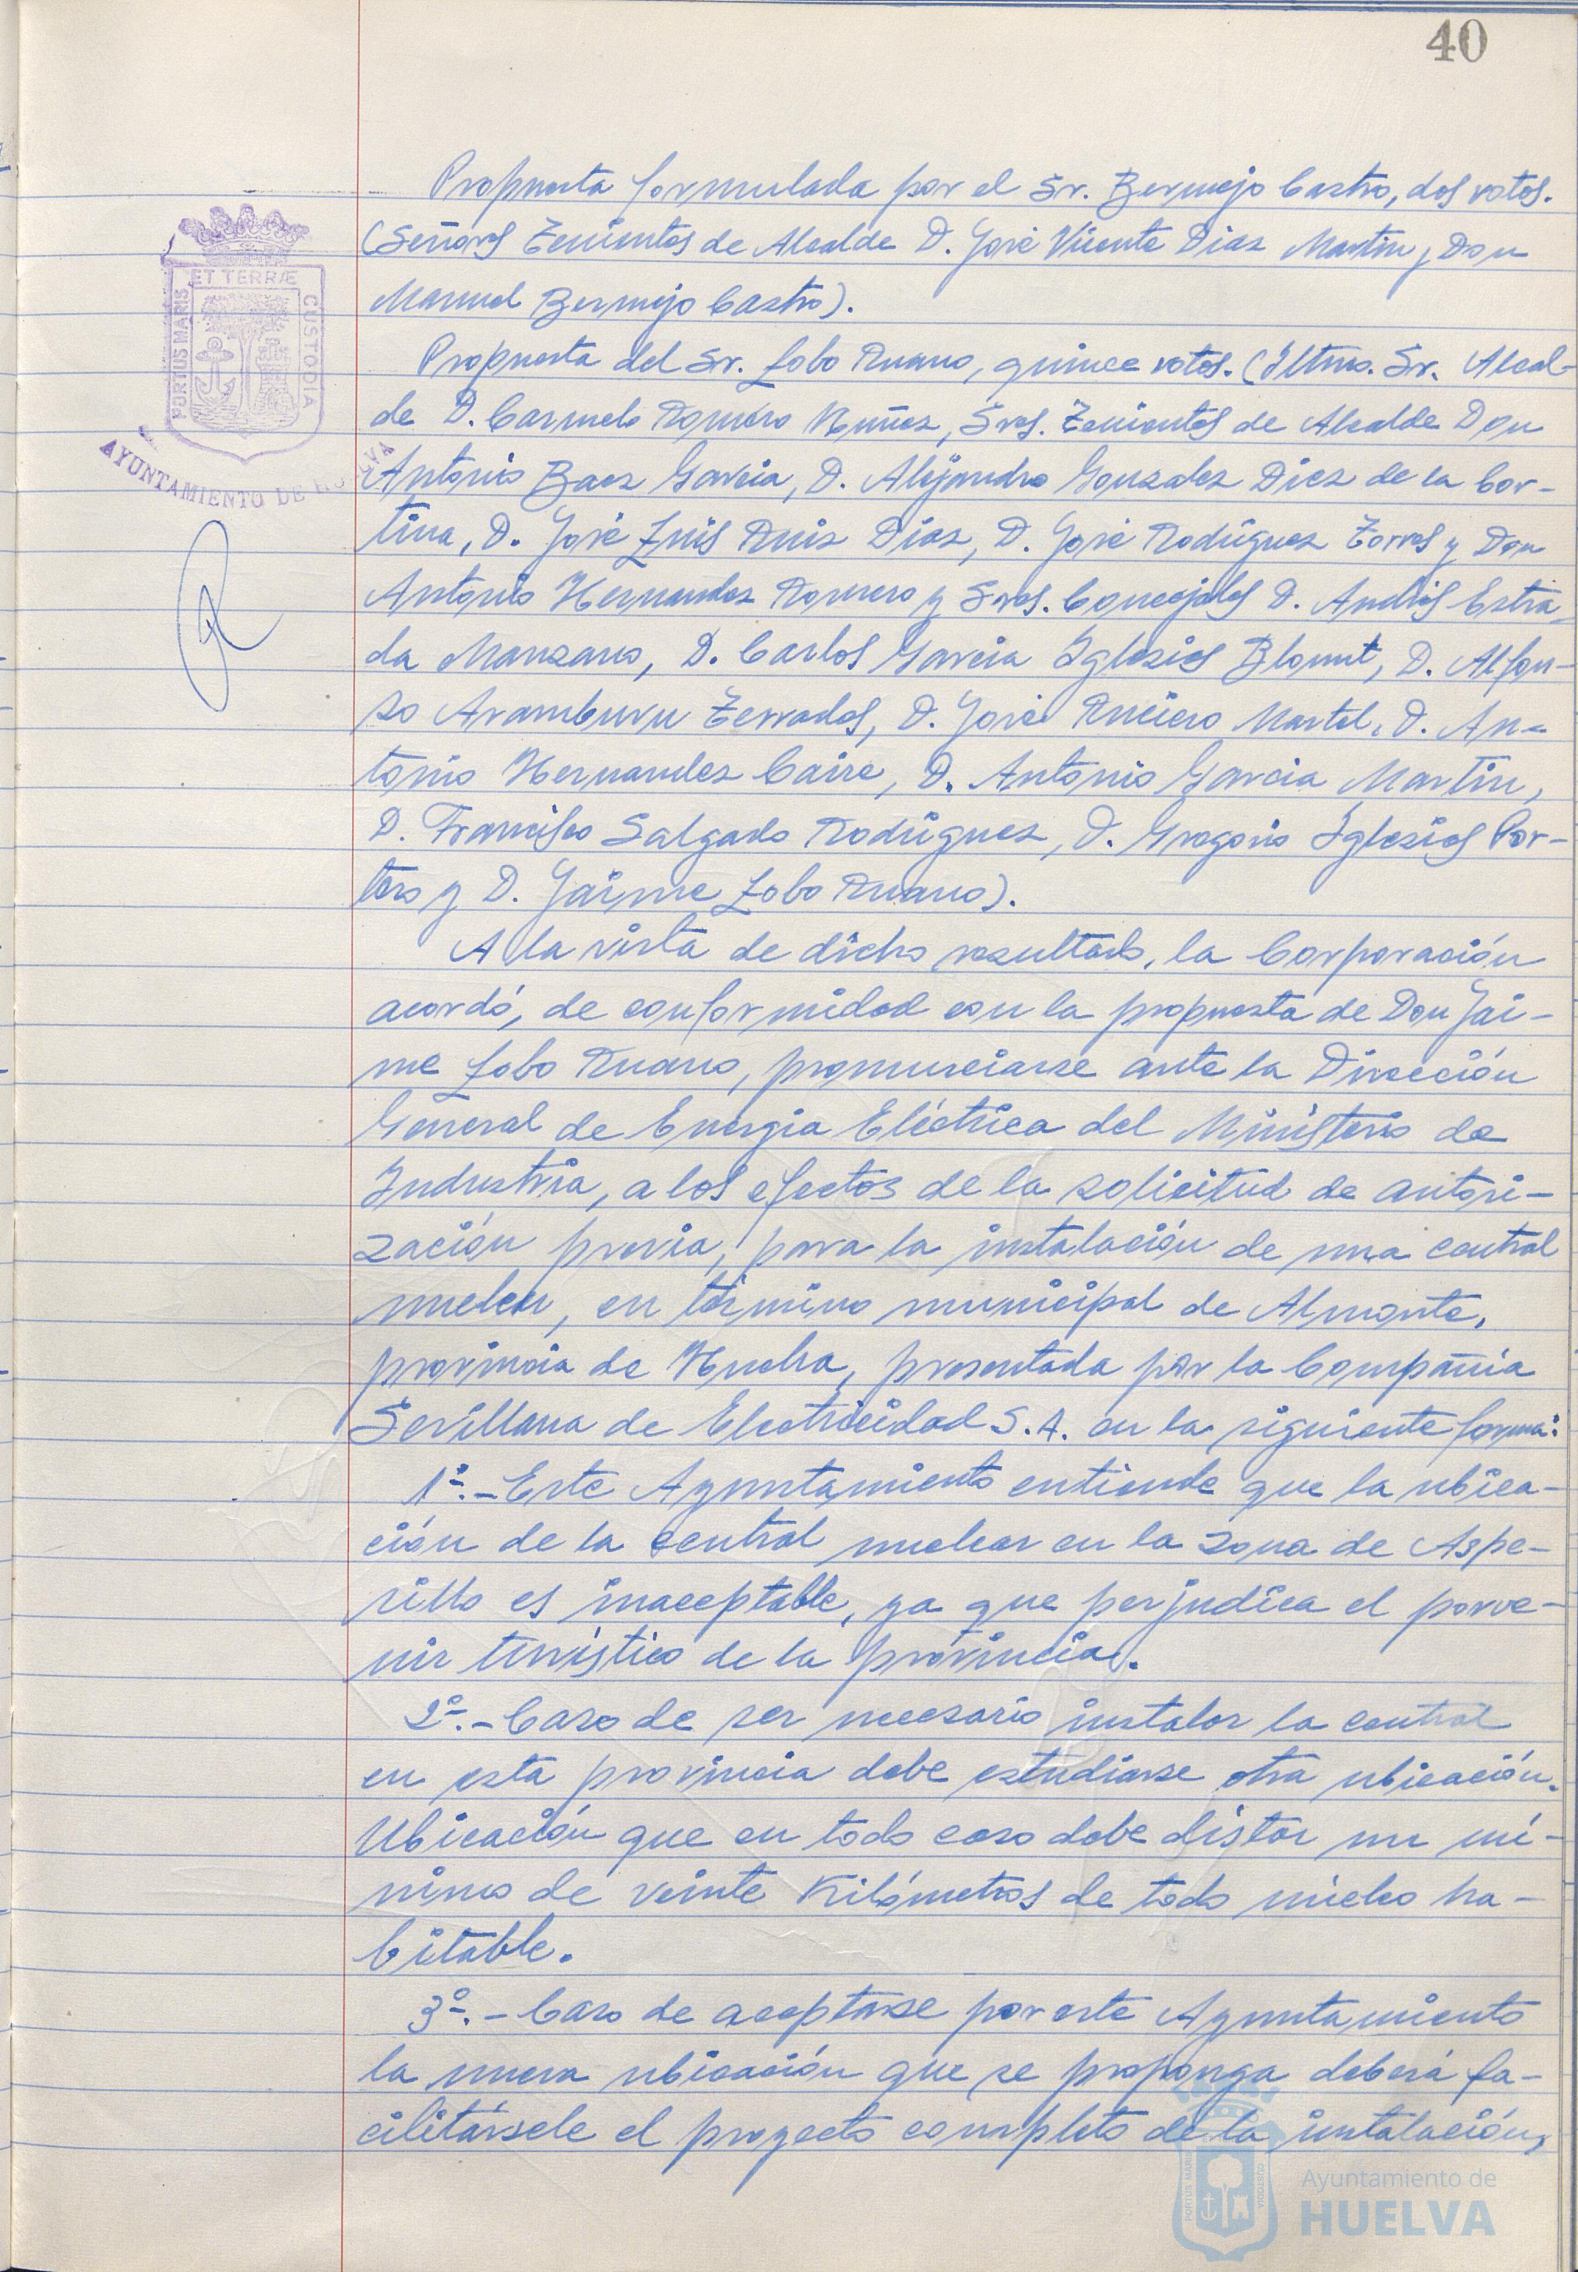 40
Propuesta formulada por el Sr. Bermejo Castro, dos votos.
(Señores Tenientes de Alcalde D. José Vicente Diaz Martin y Don
Manuel Bermejo Castro).
Propuesta del Sr. Lobo Ruano, quince votos. (Iltmo. Sr. Alcal-
de D. Carmelo Romero Nuñez, Sres. Tenientes de Alcalde Don
Antonio Baez Garcia, D. Alejandro Gonzalez Diez de la Cor-
tina, D. José Luis Ruiz Díaz, D. José Rodriguez Torres y Don
Antonio Hernandez Romero y Sres. Concejales D. Andrés Estra
da Manzano, D. Carlos Garcia Iglesias Blount, D. Alfon-
so Aramburu Terrados, D. José Ruciero Martel, D. An-
tonio Hernandez Caire, D. Antonio Garcia Martin,
D. Francisco Salgado Rodriguez, D. Gregorio Iglesias Por-
tero y D. Jaime Lobo Ruano).
A la vista de dicho resultado, la Corporación
acordó, de conformidad con la propuesta de Don Jai-
me Lobo Ruano, pronunciarse ante la Dirección
General de Energia Eléctrica del Ministerio de
Industria, a los efectos de la solicitud de autori-
zación previa, para la instalación de una central
nuclear, en término municipal de Almonte,
provincia de Huelva, presentada por la Compañia
Sevillana de Electricidad S.A. en la siguiente forma:
1º.- Este Ayuntamiento entiende que la ubica-
ción de la central nuclear en la zona de Aspe-
rillo es inaceptable, ya que perjudica el porve-
nir turístico de la provincia.
2º.- Caso de ser necesario instalar la central
en esta provincia debe estudiarse otra ubicación.
Ubicación que en todo caso debe distar un mí-
nimo de veinte Kilómetros de todo núcleo ha-
bitable.
3º.- Caso de aceptarse por este Ayuntamiento
la nueva ubicación que se proponga deberá fa-
cilitársele el proyecto completo de la instalación,
PORTUS MARIS ET TERRÆ CUSTODIA
AYUNTAMIENTO DE HUELVA
Ayuntamiento de
HUELVA